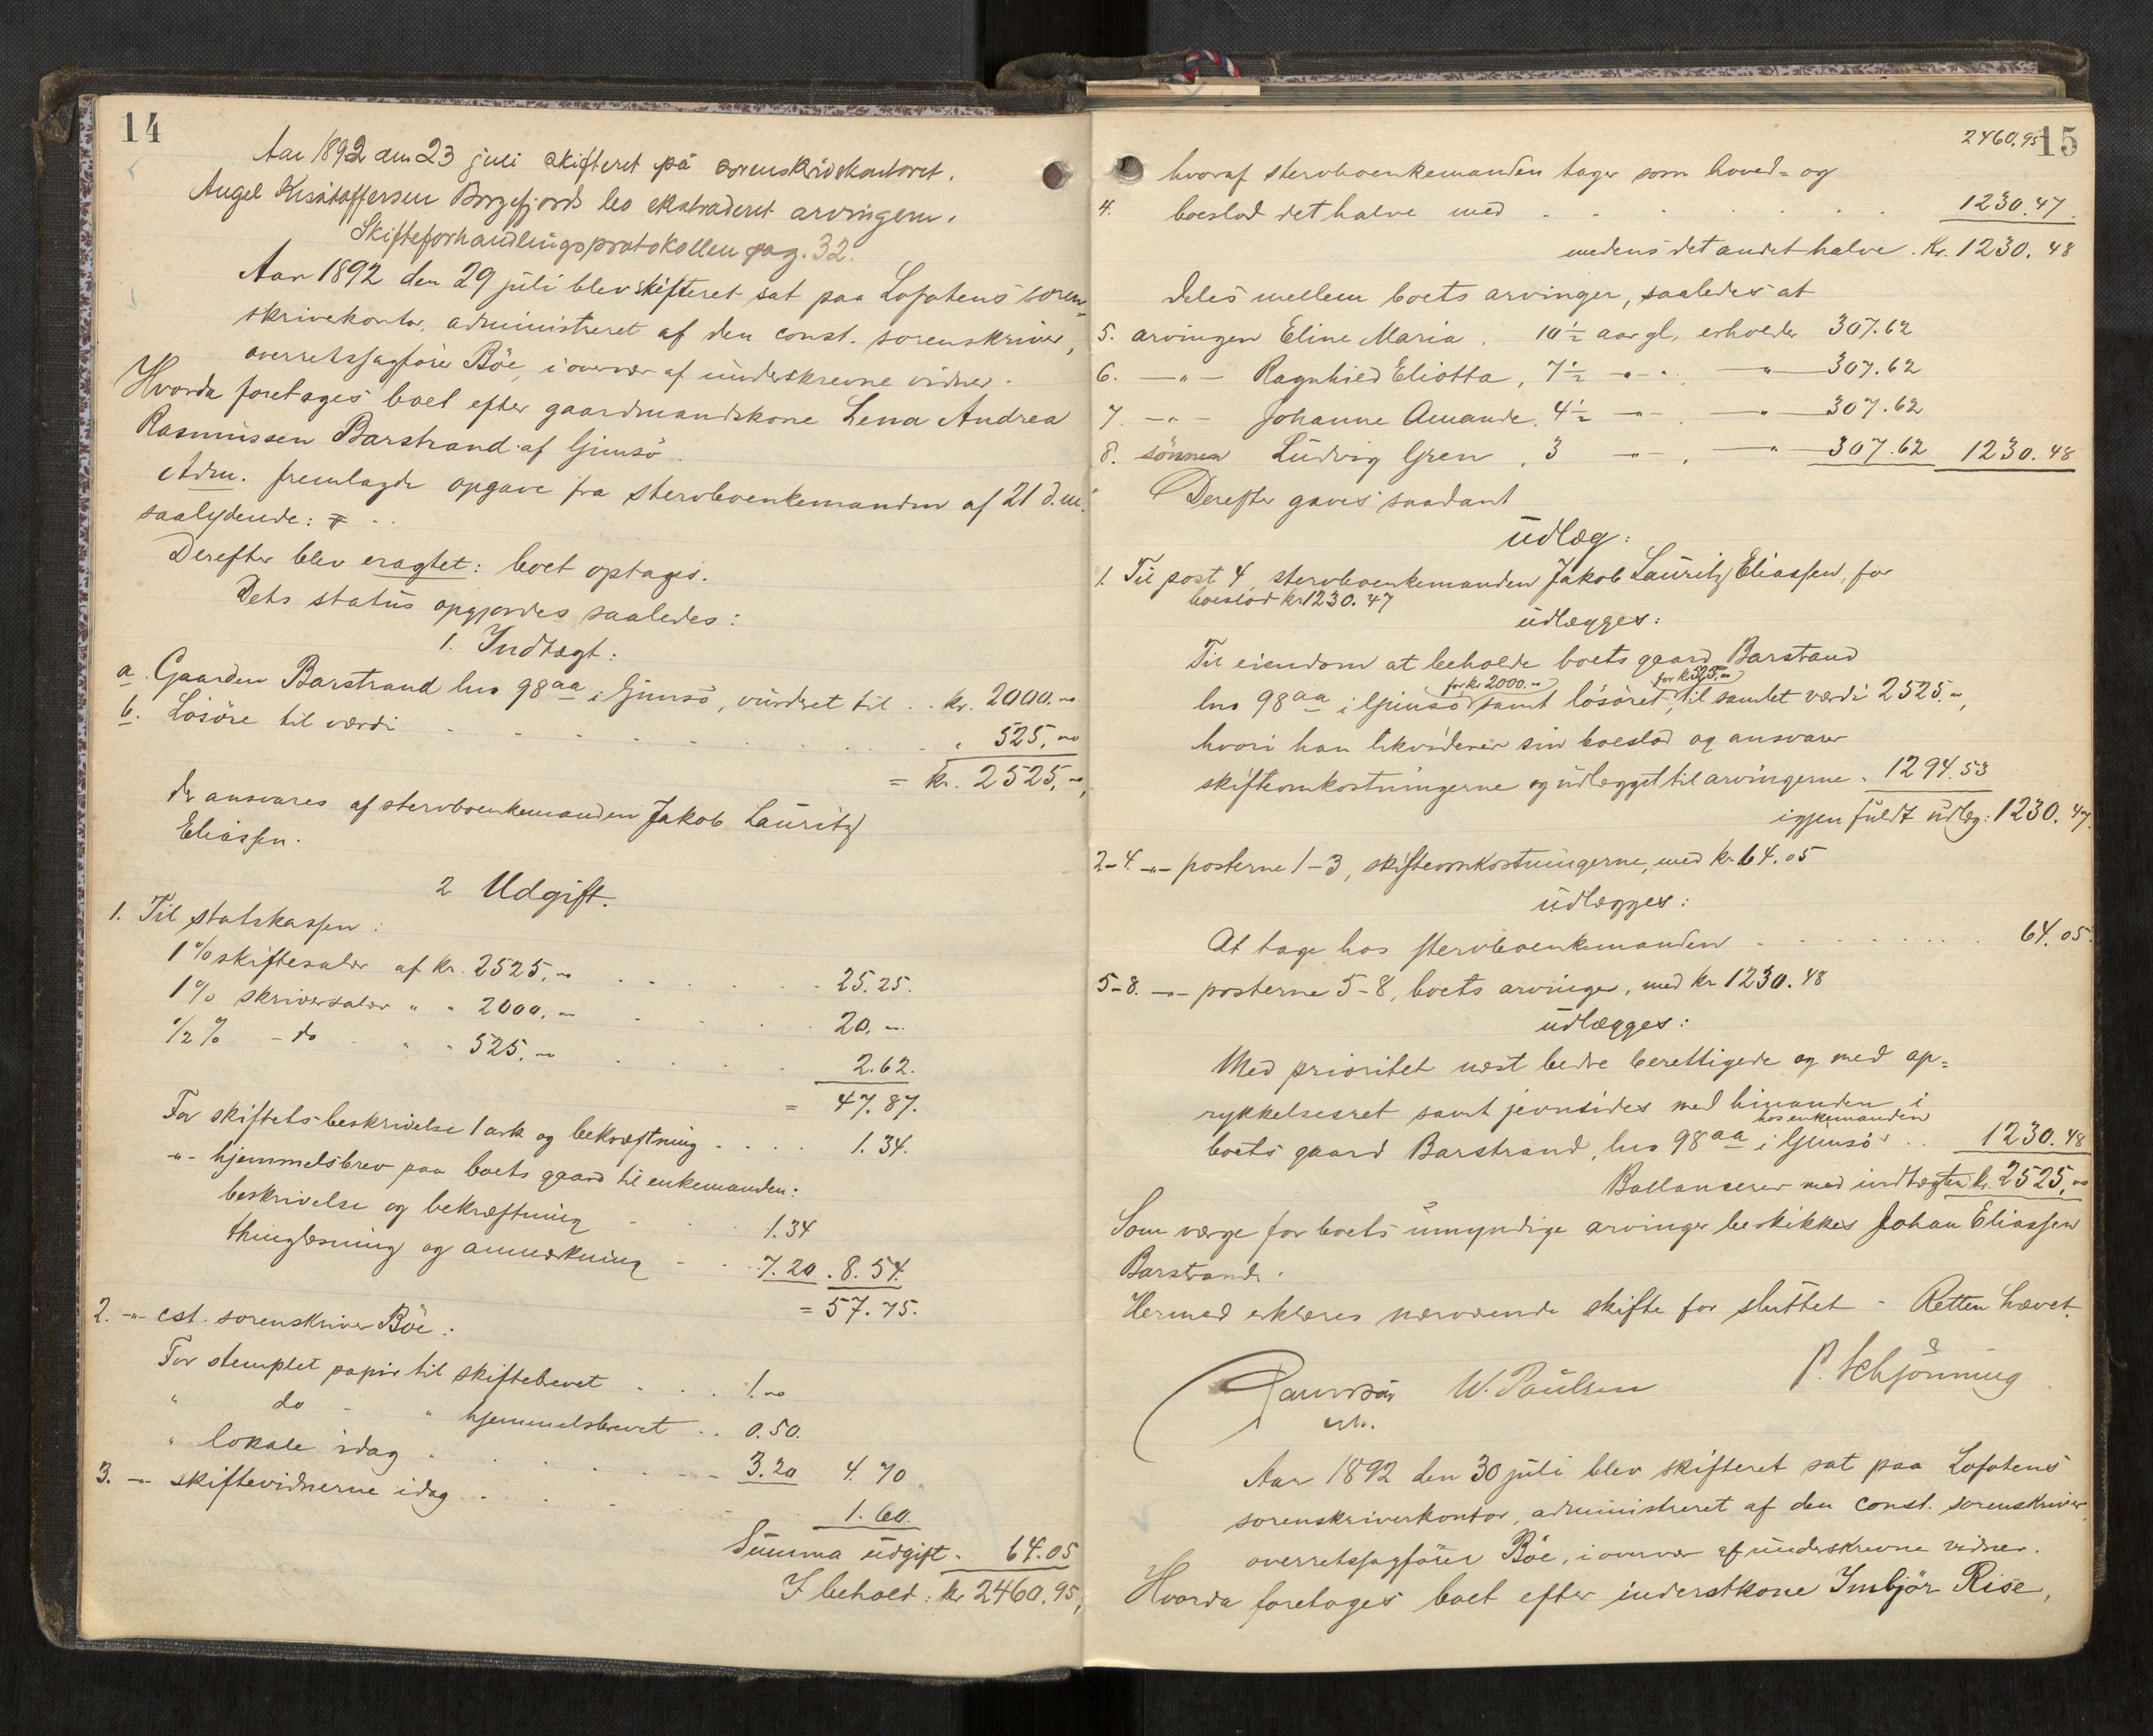 14
Aar 1892 den 23 juli skifteret på sorenskriverkontoret.
Angel Kristoffersen Borgefjords bo ekstraderet arvingerne.
Skifteforhandlingsprotokollen pag. 32.
Aar 1892 den 29 juli blev skifteret sat paa Lofotens soren-
skriverkontor, administreret af den const. sorenskriver,
overretssagfører Böe, i overvær af underskrevne vidner.
Hvorda foretages boet efter gaardmandskone Lena Andrea
Rasmussen Barstrand af Gimsö.
Adm. fremlagde opgave fra stervboenkemanden af 21 d.m.
saalydende:
Derefter blev eragtet: boet optages.
Dets status opgjordes saaledes:
1. Indtægt:
a. Gaarden Barstrand lno 98 aa i Gimsö, vurderet til . . kr. 2000.
b. Lösöre til værdi . . . 525.
= kr. 2525.
der ansvares af stervboenkemanden Jakob Lauritz
Eliassen.
2 Udgift.
1. Til statskassen:
1% skiftesalær af kr. 2525. . . . 25.25.
1% skriversalær " " 2000. . . . 20.
1/2 % - do - " " 525. . . . 2.62.
= 47.87.
For skiftets beskrivelse 1 ark og bekræftning . . . . 1.34.
-"- hjemmelsbrev paa boets gaard til enkemanden:
beskrivelse og bekræftning . . . 1.34
thinglæsning og anmærkning . . . 7.20 . 8.54.
= 57.75.
2. -"- cst. sorenskriver Böe:
For stemplet papir til skiftebrevet . . . 1.
" do - " hjemmelsbrevet . . 0.50.
" lokale idag . . . 3.20 4.70
3. -"- skiftevidnerne idag . . . 1.60.
Summa udgift . 64.05
I behold: kr 2460.95,
15
2460.95
hvoraf stervboenkemanden tager som hoved- og
4. boeslod det halve med . . . 1230.47.
medens det andet halve . Kr. 1230.48
deles mellem boets arvinger, saaledes at
5. arvingen Eline Maria . 10 1/2 aar gl, erholder 307.62
6. -"- Ragnhild Eliotta, 7 1/2 -"- . -"- 307.62
7. -"- Johanne Amande, 4 1/2 -"- . -"- 307.62
8. sönnen Ludvig Gren , 3 -"- , -"- 307.62 1230.48
Derefter gaves saadant
udlæg:
1. Til post 4, stervboenkemanden Jakob Lauritz Eliassen, for
boeslod kr 1230.47
udlægges:
Til eiendom at beholde boets gaard Barstrand
for kr 2000. for kr 525.
lno 98 aa i Gimsö samt lösöret, til samlet værdi 2525.,
hvori han likviderer sin boeslod og ansvarer
skifteomkostningerne og udlægget til arvingerne . 1294.53
igjen fuldt udlæg: 1230.47.
2-4. -"- posterne 1-3, skifteomkostningerne, med kr 64.05
udlægges:
At tage hos stervboenkemanden . . . 64.05
5-8. -"- posterne 5-8, boets arvinger, med kr 1230.48
udlægges:
Med prioritet næst bedre berettigede og med op-
rykkelsesret samt jevnsides med hinanden i
hos enkemanden
boets gaard Barstrand, lno 98 aa i Gimsö . . 1230.48
Ballancerer med indtægten kr. 2525.
Som værge for boets umyndige arvinger beskikkes Johan Eliassen
Barstrand.
Hermed erklæres nærværende skifte for sluttet - Retten hævet.
W. Paulsen P. Schjönning
cst.
Aar 1892 den 30 juli blev skifteret sat paa Lofotens
sorenskriverkontor, administreret af den const. sorenskriver,
overretssagfører Böe, i overvær af underskrevne vidner.
Hvorda foretages boet efter inderstkone Imbjör Rise,